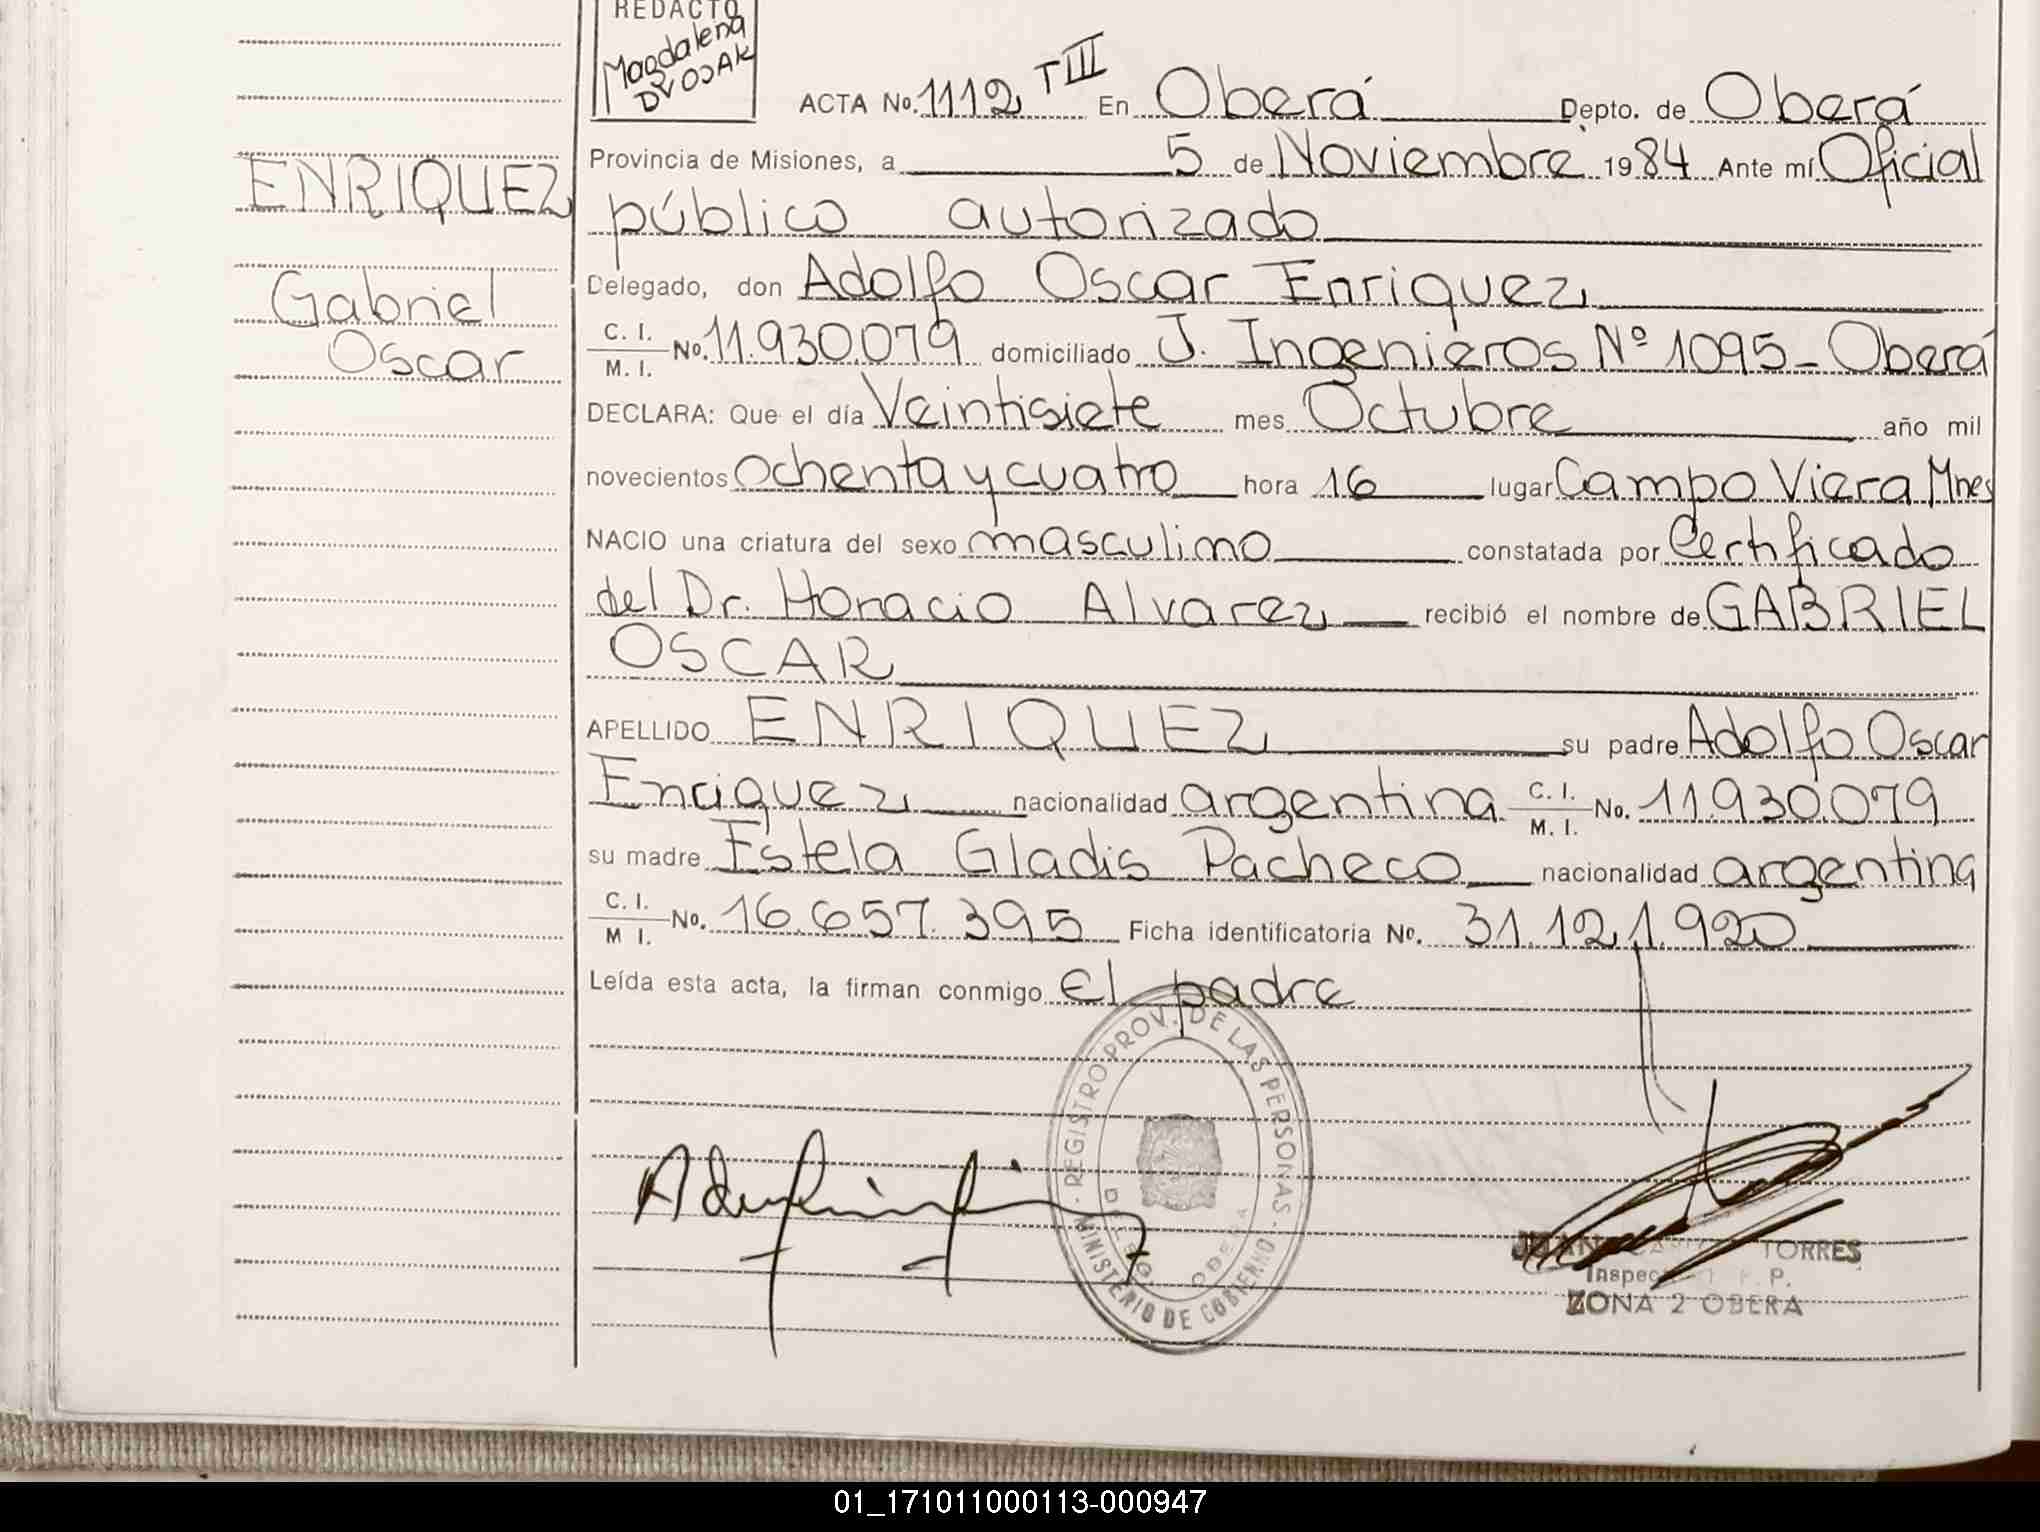 REDACTO
Magdalena
DVOJAK
ACTA No. 1112 T III En Oberá Depto. de Oberá
Provincia de Misiones, a 5 de Noviembre 1984 Ante mí Oficial
ENRIQUEZ
público autorizado
Delegado, don Adolfo Oscar Enriquez
Gabriel
Oscar
C. I.
M. I. No. 11.930.079 domiciliado J. Ingenieros Nº 1095 - Oberá
DECLARA: Que el día Veintisiete mes Octubre año mil
novecientos Ochenta y cuatro hora 16 lugar Campo Viera Mnes
NACIO una criatura del sexo masculino constatada por Certificado
del Dr. Horacio Alvarez recibió el nombre de GABRIEL
OSCAR
APELLIDO ENRIQUEZ su padre Adolfo Oscar
Enriquez nacionalidad argentina C. I. M. I. No. 11.930.079
su madre Estela Gladis Pacheco nacionalidad argentina
C. I.
M I. No. 16.657.395 Ficha identificatoria No. 31.121.920
Leída esta acta, la firman conmigo El padre
REGISTRO PROV. DE LAS PERSONAS
MINISTERIO DE GOBIERNO
OBERA
JUAN TORRES
P.
ZONA 2 OBERA
01_171011000113-000947